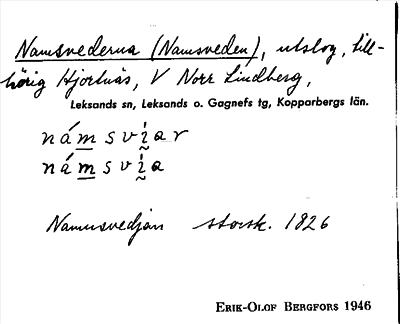 Namsvederna (Namsveden), utslog, till-
hörig Hjortnäs, V Norr Lindberg,
Leksands sn, Leksands o. Gagnefs tg, Kopparbergs län.
námsvi̇́ar
námsvi̇́a
Namnsvedjan storsk. 1826
Erik-Olof Bergfors 1946